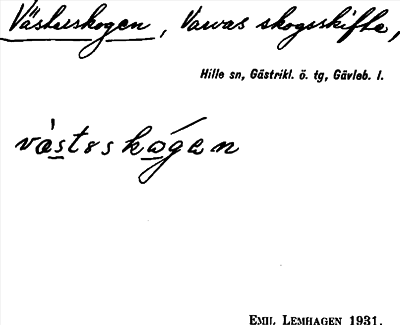 Västerskogen, Varvas skogsskifte,
Hille sn, Gästrikl. ö. tg, Gävleb. l.
våstɛskógen
EMIL LEMHAGEN 1931.